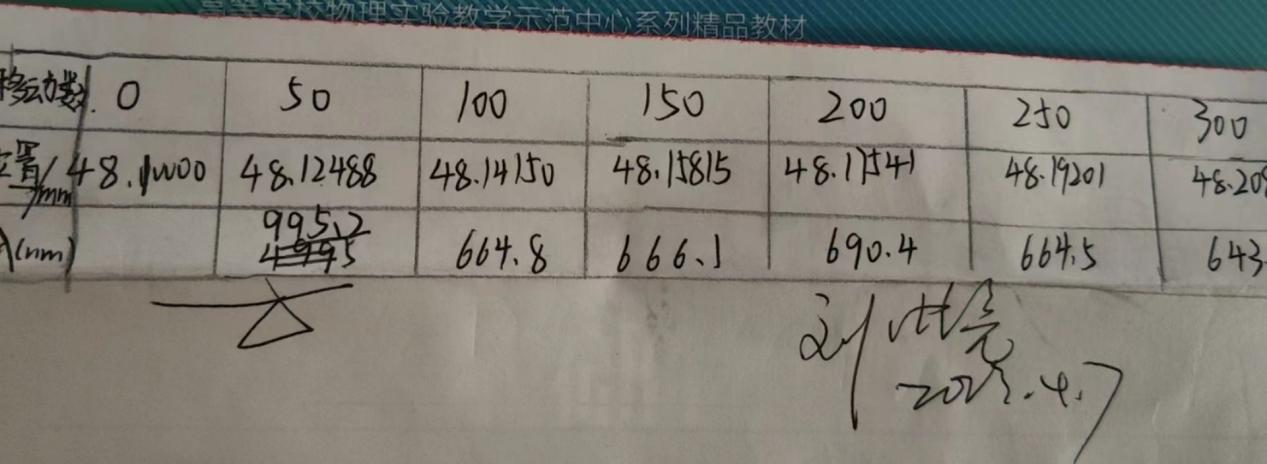 高等学校物理实验教学示范中心系列精品教材
移动数 0 50 100 150 200 250 300
位置/mm 48.10000 48.12488 48.14150 48.15815 48.17541 48.19201 48.20
995.2
λ(nm) 664.8 666.1 690.4 664.5 643.
刘
4.7